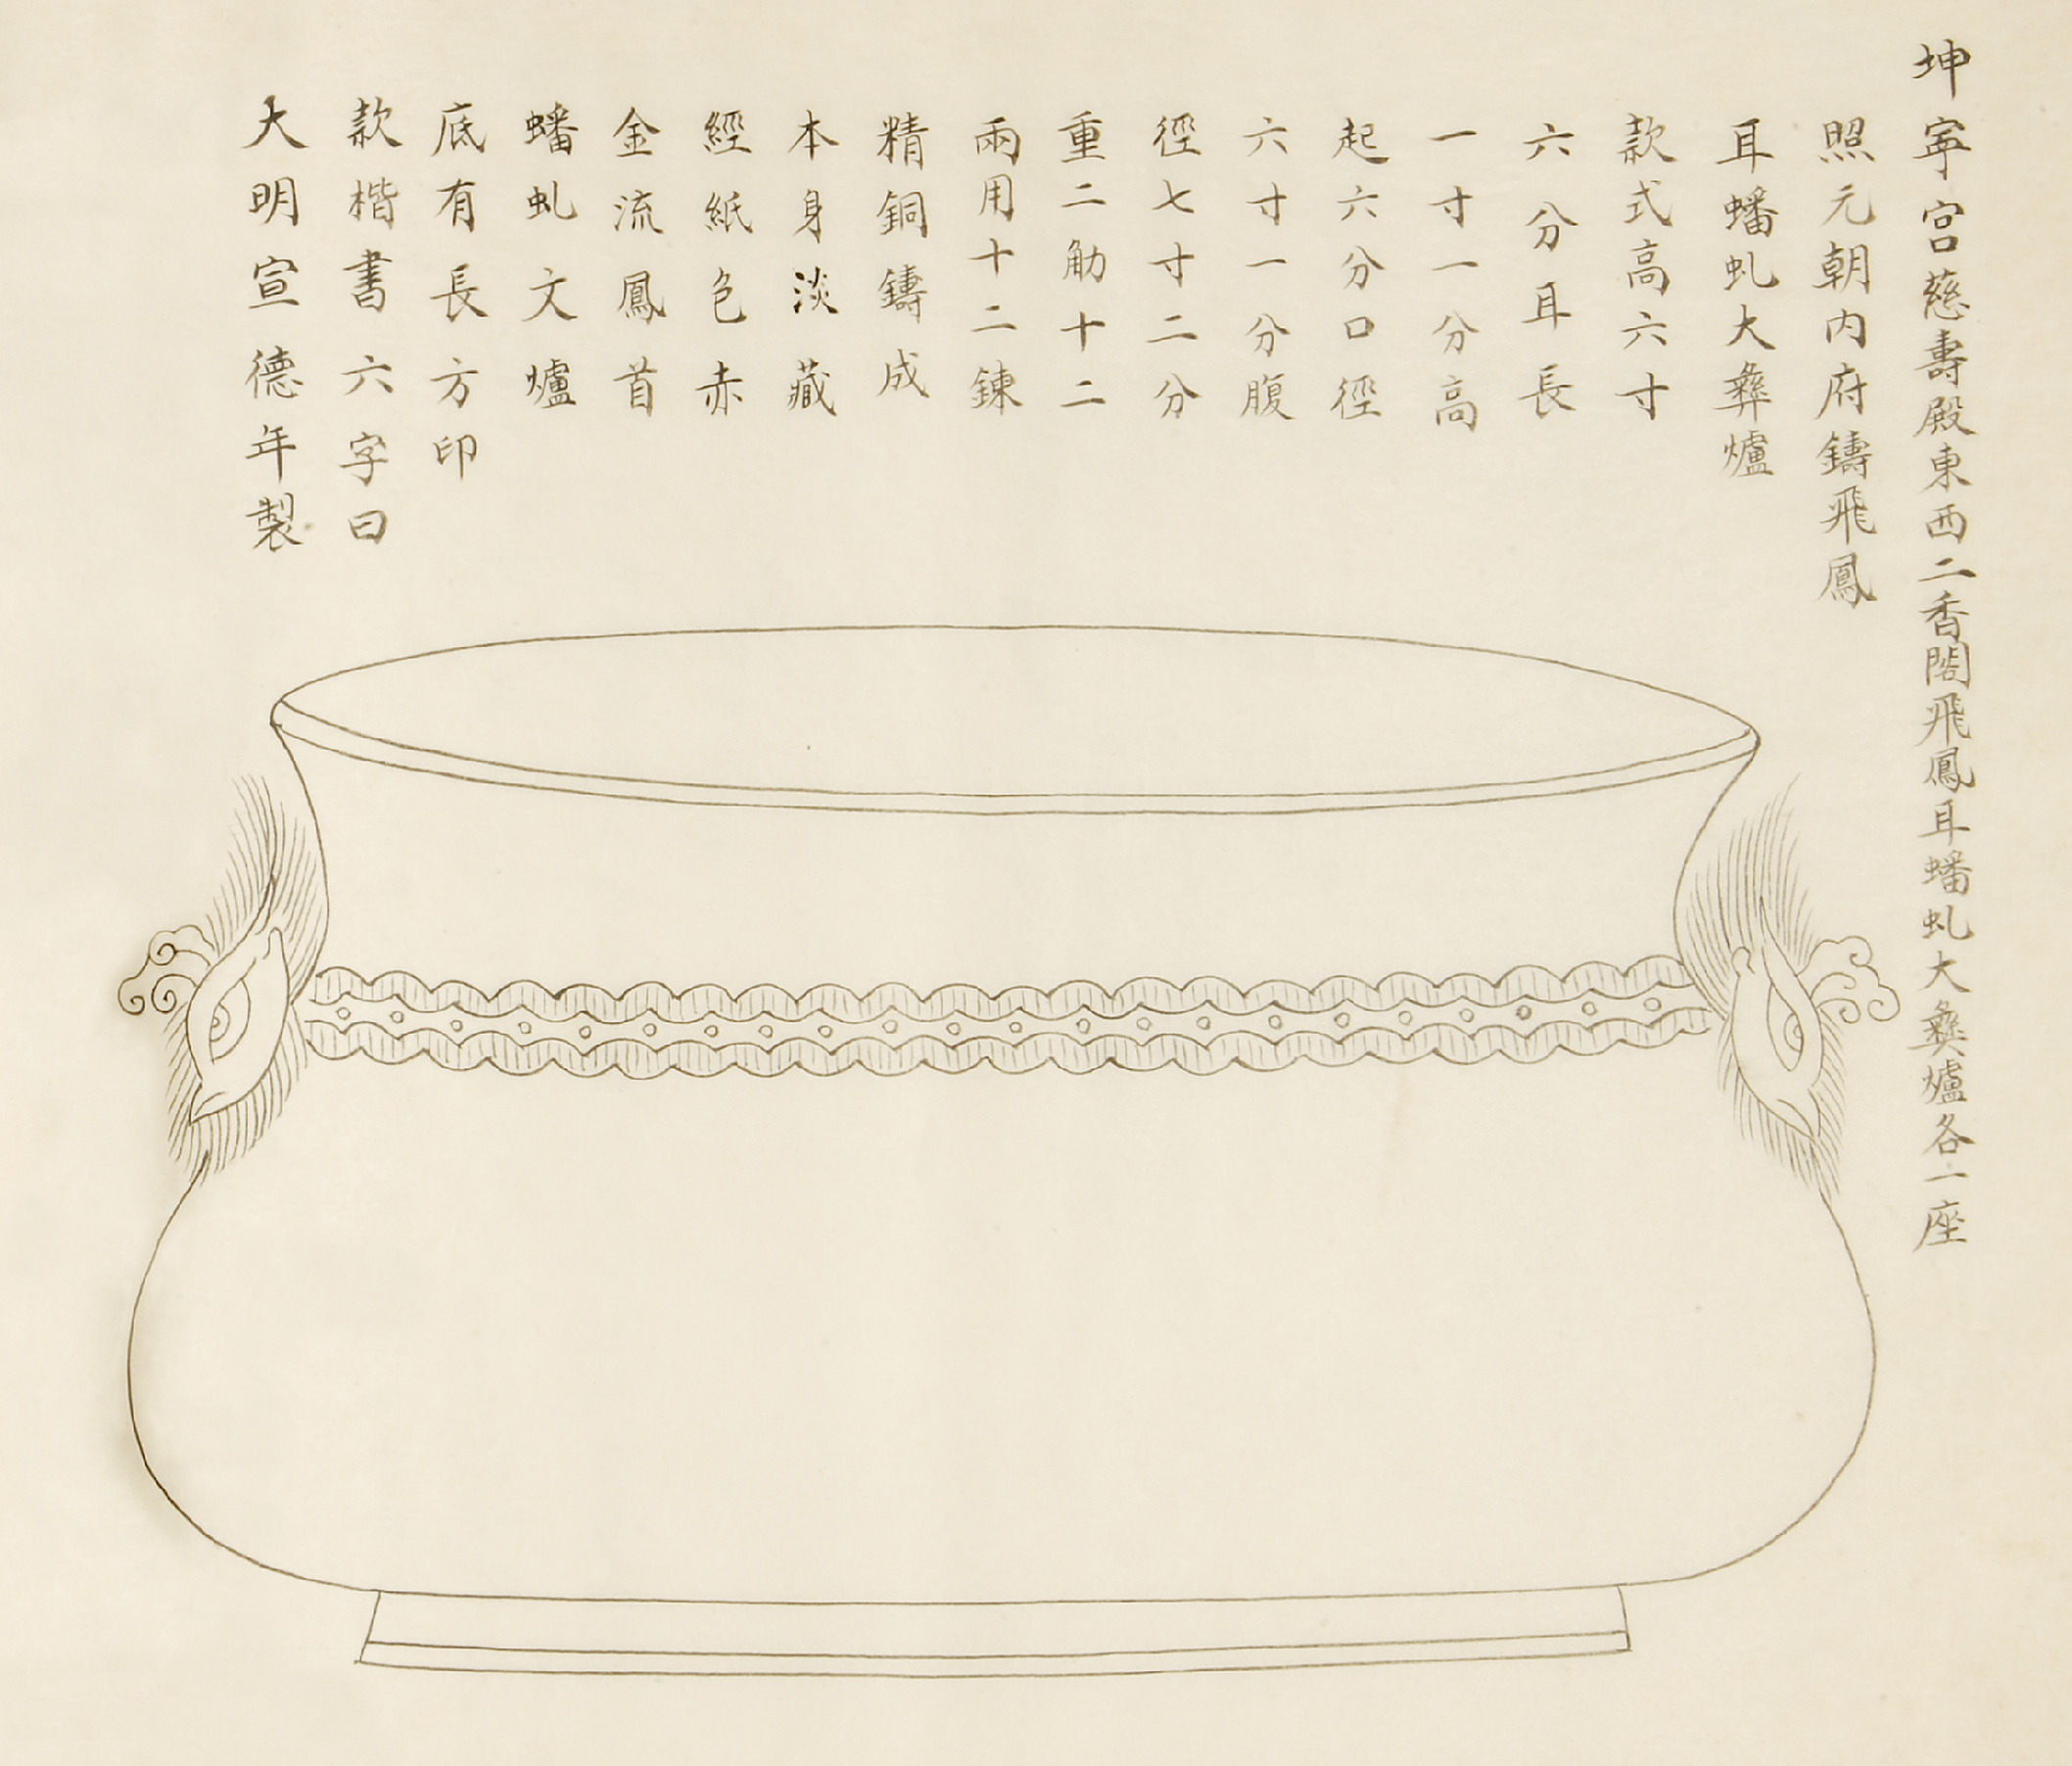 坤寧宮慈壽殿東西二香閣飛鳳耳蟠虬大彝爐各一座
照元朝内府鑄飛鳳
耳蟠虬大彝爐
款式高六寸
六分耳長
一寸一分高
起六分口徑
六寸一分腹
徑七寸二分
重二觔十二
兩用十二鍊
精銅鑄成
本身淡藏
經紙色赤
金流鳳首
蟠虬文爐
底有長方印
款楷書六字曰
大明宣德年製